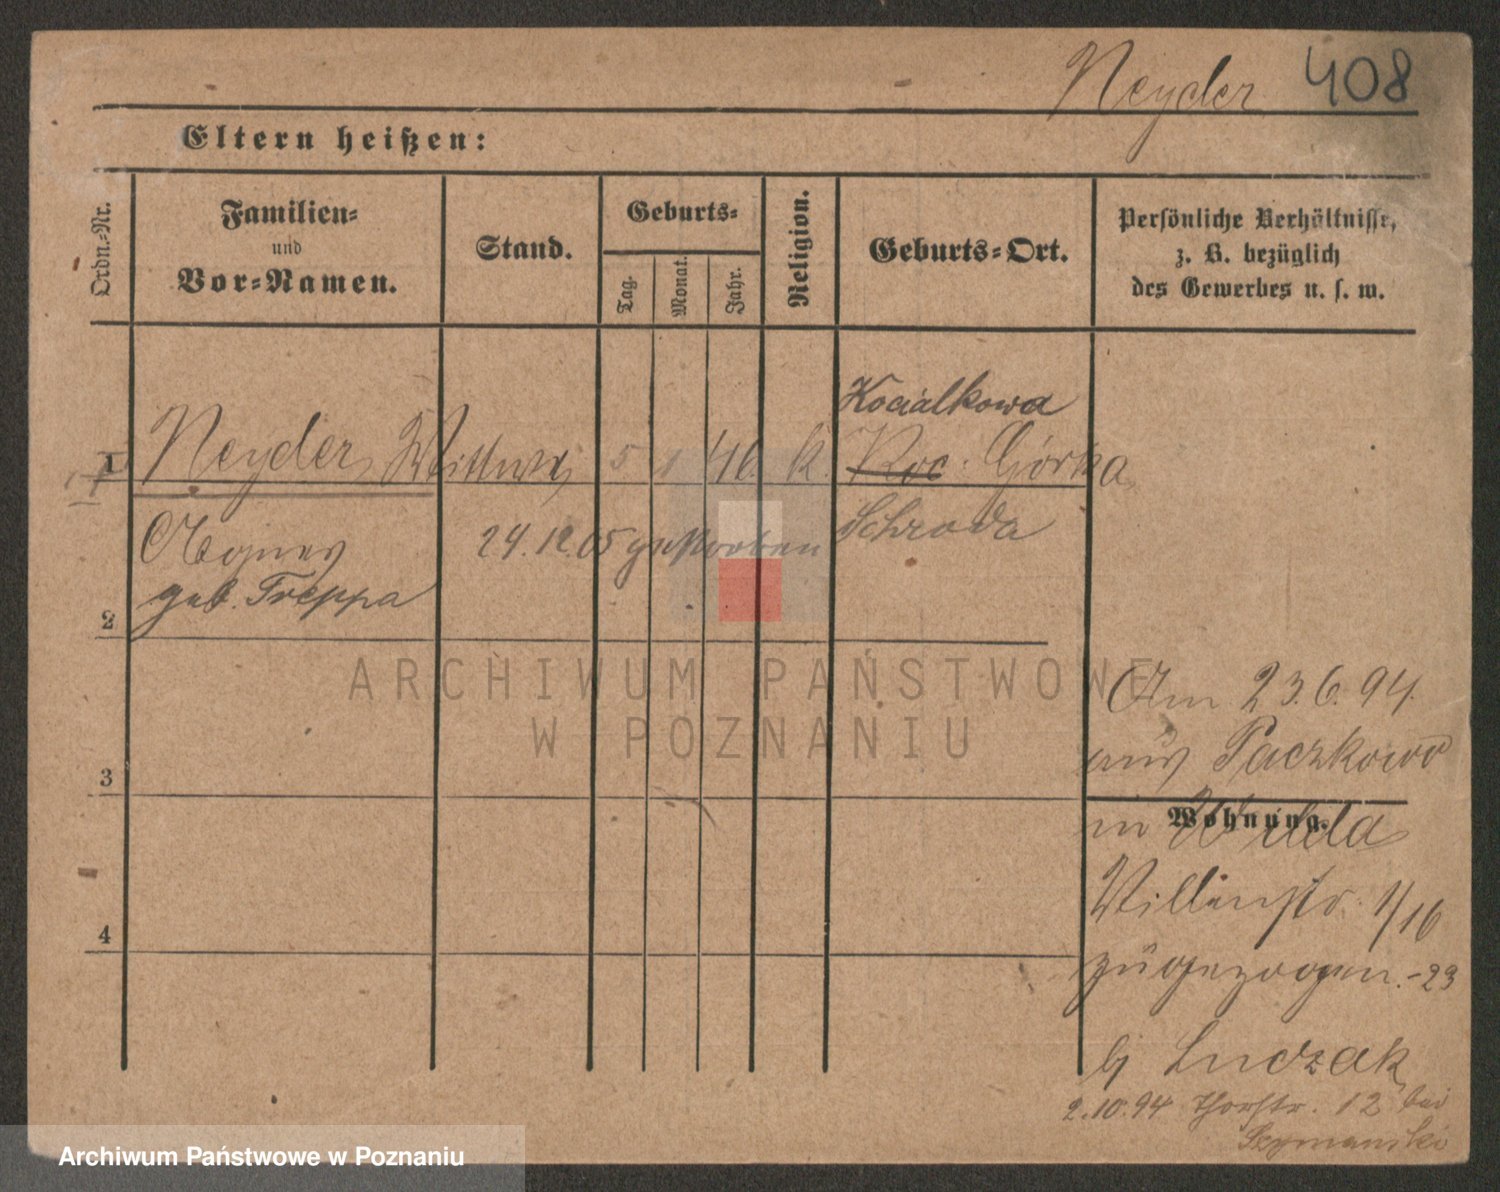 Neyder 408
Eltern heißen:
Ordn.-Nr.
Familien-
und
Vor-Namen.
Stand.
Geburts-
Tag.
Monat.
Jahr.
Religion.
Geburts-Ort.
Persönliche Verhältnisse,
z. B. bezüglich
des Gewerbes u. s. w.
Kocialkowa
1 Neyder, Wittwe 5 1 46. k. Koc. Górka
Agnes 24.12.05 gestorben Schroda
geb. Treppa
2
ARCHIWUM PAŃSTWOWE
W POZNANIU
Am 23.6.94.
aus Paczkowo
3
Wohnung.
in Wilda
Villenstr. 1/16
4
zugezogen. -23
b/ Luczak
2.10.94 Thorstr. 12 bei
Szymanski
Archiwum Państwowe w Poznaniu